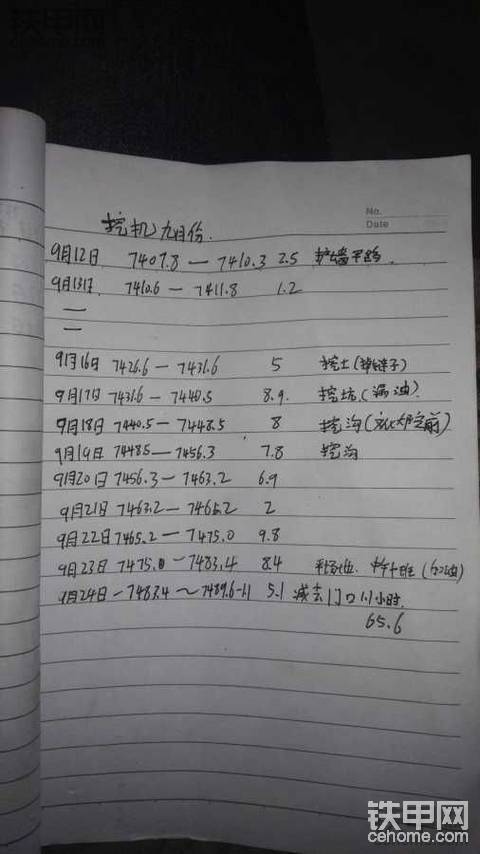 铁甲网
cehome.com
No.
Date
挖机九月份.
9月12日 7407.8 — 7410.3 2.5 护墙平路.
9月13日 7410.6 — 7411.8 1.2
9月16日 7426.6 — 7431.6 5 挖土(掉链子)
9月17日 7431.6 — 7440.5 8.9. 挖坑(漏油)
9月18日 7440.5 — 7448.5 8 挖沟(之前)
9月19日 7448.5 — 7456.3 7.8 挖沟
9月20日 7456.3 — 7463.2 6.9
9月21日 7463.2 — 7465.2 2
9月22日 7465.2 — 7475.0 9.8
9月23日 7475.0 — 7483.4 8.4 (加油)
9月24日 - 7483.4 ~ 7489.6-1.1 5.1 减去门口1.1小时.
65.6
铁甲网
cehome.com